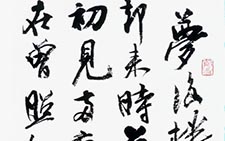 夢後樓
却来時
初見兩
在曾照